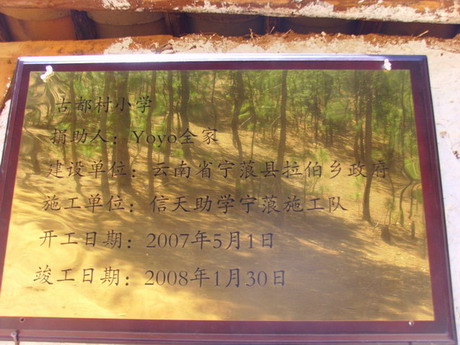 古都村小学
捐助人：Yoyo全家
建设单位：云南省宁蒗县拉伯乡政府
施工单位：信天助学宁蒗施工队
开工日期：2007年5月1日
竣工日期：2008年1月30日